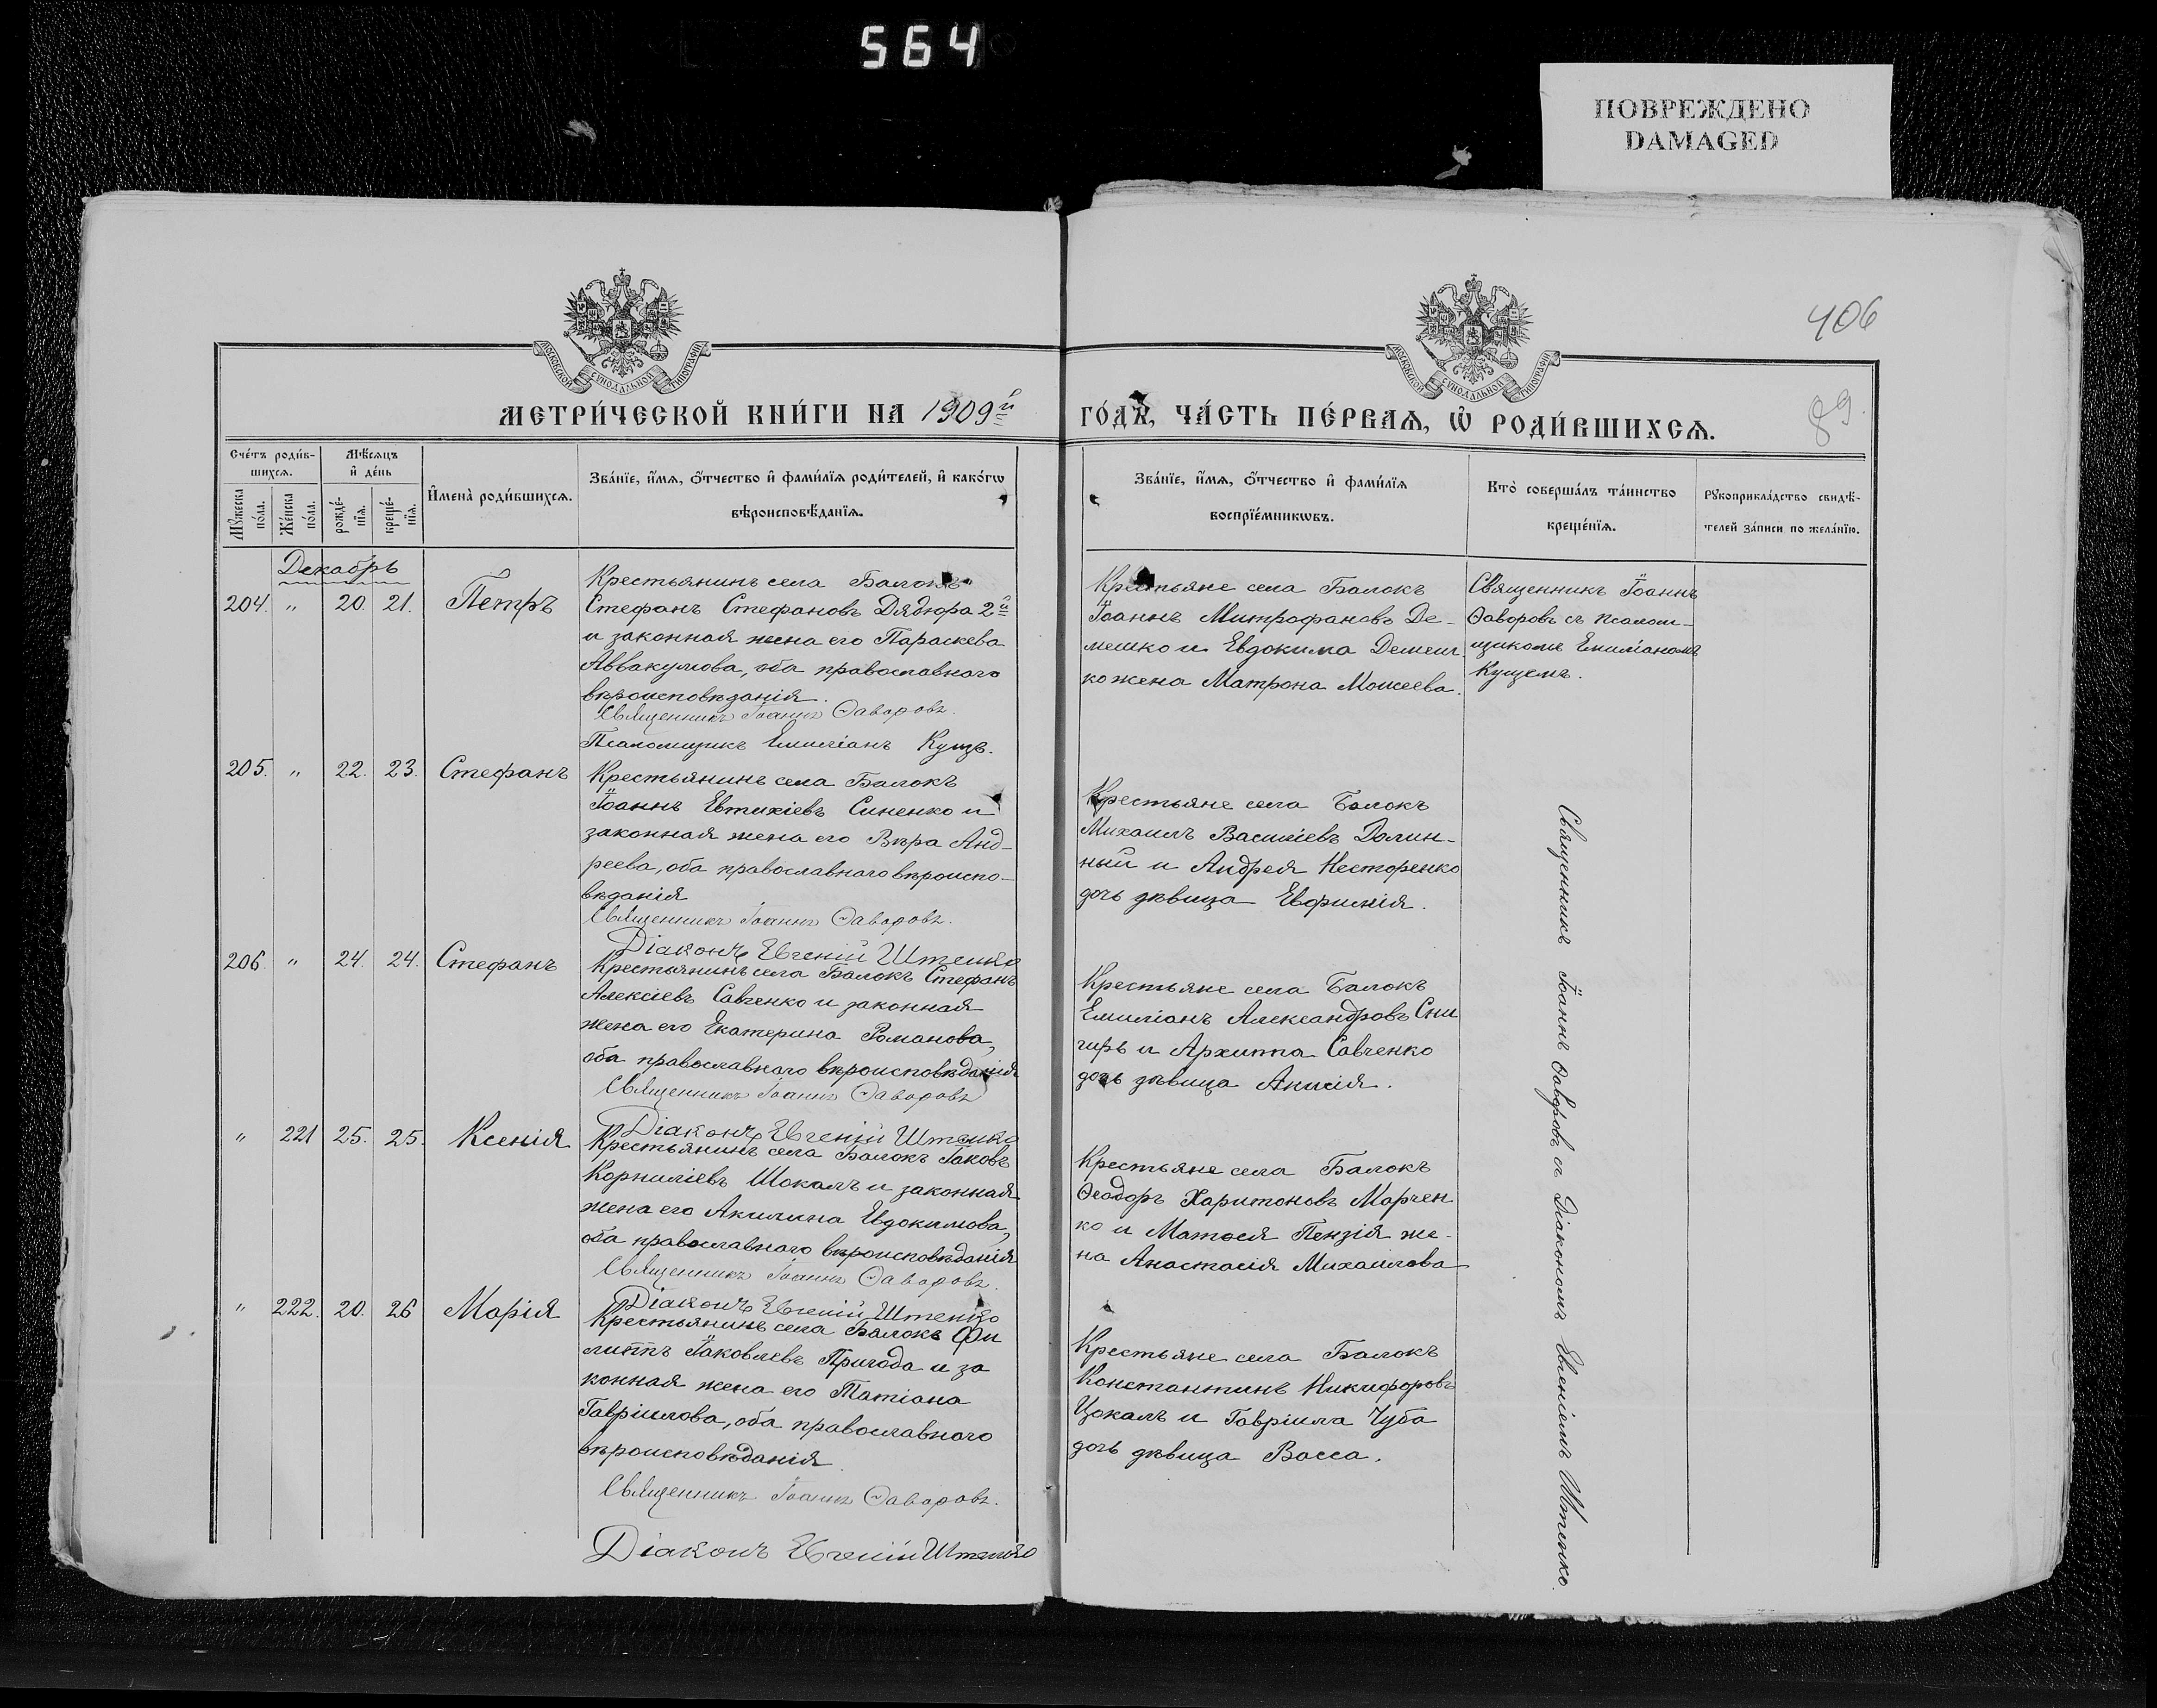 564
ПОВРЕЖДЕНО
DAMAGED
406
89.
МОСКОВСКОЙ СѴНОДАЛЬНОЙ ТИПОГРАФІИ
МОСКОВСКОЙ СѴНОДАЛЬНОЙ ТИПОГРАФІИ
МЕТРИ́ЧЕСКОЙ КНИ́ГИ НА 1909й
ГО́ДꙊ, ЧА́СТЬ ПЕ́РВАѦ, Ѡ҆ РОДИ́ВШИХСѦ.
Сче́тъ роди́в-
шихсѧ.
Мѣ́сѧцъ
и҆ де́нь
Мꙋ́жеска
по́ла.
Же́нска
по́ла.
рожде́-
нїѧ.
креще́-
нїѧ.
И҆мена̀ роди́вшихсѧ.
Зва́нїе, и҆́мѧ, ѻ҆́тчество и҆ фами́лїѧ роди́телей, и҆ како́гѡ
вѣроисповѣ́данїѧ.
Зва́нїе, и҆́мѧ, ѻ҆́тчество и҆ фами́лїѧ
воспрїе́мникѡвъ.
Кто̀ соверша́лъ та́инство
креще́нїѧ.
Рꙋкоприкла́дство свидѣ́-
телей за́писи по жела́нїю.
Декабрь
204. " 20. 21. Петръ
Крестьянинъ села Балокъ
Стефанъ Стефановъ Дядюра 2й
и законная жена его Параскева
Аввакумова, оба православного
вѣроисповѣданія.
Священникъ Іоаннъ Ѳаворовъ.
Псаломщикъ Емиліанъ Куцъ.
Крестьяне села Балокъ
Іоаннъ Митрофановъ Де-
мешко и Евдокима Демеш
ко жена Матрона Моисеева.
Священникъ Іоаннъ
Ѳаворовъ съ псалом-
щикомъ Емиліаномъ
Куцемъ.
205. " 22. 23. Стефанъ
Крестьянинъ села Балокъ
Іоаннъ Евтихіевъ Синенко и
законная жена его Вѣра Анд-
реева, оба православнаго вѣроиспо-
вѣданія
Священникъ Іоаннъ Ѳаворовъ.
Діаконъ Евгеній Штепко
Крестьяне села Балокъ
Михаилъ Василіевъ Долин-
ный и Андрея Несторенко
дочь дѣвица Евфимія.
Священникъ Іоаннъ Ѳаворовъ съ Діакономъ Евгеніемъ Штепко.
206. " 24. 24. Стефанъ
Крестьянинъ села Балокъ Стефанъ
Алексіевъ Савченко и законная
жена его Екатерина Романова,
оба православнаго вѣроисповѣданія
Священникъ Іоаннъ Ѳаворовъ
Діаконъ Евгеній Штепко
Крестьяне села Балокъ
Емиліанъ Александровъ Сни
гирь и Архиппа Савченко
дочь дѣвица Акилія.
" 221 25. 25. Ксенія
Крестьянинъ села Балокъ Іаковъ
Корниліевъ Шокалъ и законная
жена его Акилина Евдокимова,
оба православнаго вѣроисповѣданія
Священникъ Іоаннъ Ѳаворовъ.
Діаконъ Евгеній Штепко
Крестьяне села Балокъ
Ѳеодоръ Харитоновъ Марчен
ко и Матѳея Пензія же-
на Анастасія Михаилова
" 222. 20. 26 Марія
Крестьянинъ села Балокъ Фи
липпъ Іаковлевъ Пригода и за
конная жена его Татіана
Гавріилова, оба православнаго
вѣроисповѣданія.
Священникъ Іоаннъ Ѳаворовъ.
Діаконъ Евгеній Штепко
Крестьяне села Балокъ
Константинъ Никифоровъ
Цокалъ и Гавріила Чуба
дочь дѣвица Васса.